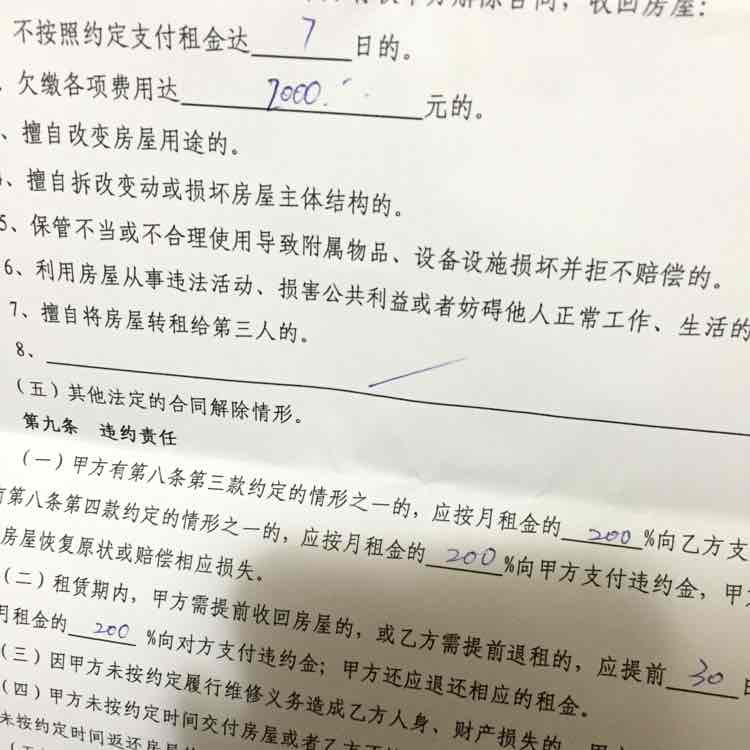 解除合同，收回房屋：
不按照约定支付租金达 7 日的。
欠缴各项费用达 7000. 元的。
、擅自改变房屋用途的。
、擅自拆改变动或损坏房屋主体结构的。
5、保管不当或不合理使用导致附属物品、设备设施损坏并拒不赔偿的。
6、利用房屋从事违法活动、损害公共利益或者妨碍他人正常工作、生活的
7、擅自将房屋转租给第三人的。
8、
（五）其他法定的合同解除情形。
第九条 违约责任
（一）甲方有第八条第三款约定的情形之一的，应按月租金的 200 %向乙方支
有第八条第四款约定的情形之一的，应按月租金的 200 %向甲方支付违约金，甲
房屋恢复原状或赔偿相应损失。
（二）租赁期内，甲方需提前收回房屋的，或乙方需提前退租的，应提前 30 日
月租金的 200 %向对方支付违约金；甲方还应退还相应的租金。
（三）因甲方未按约定履行维修义务造成乙方人身、财产损失的，甲
（四）甲方未按约定时间交付房屋或者乙方不
未按约定时间返还房屋